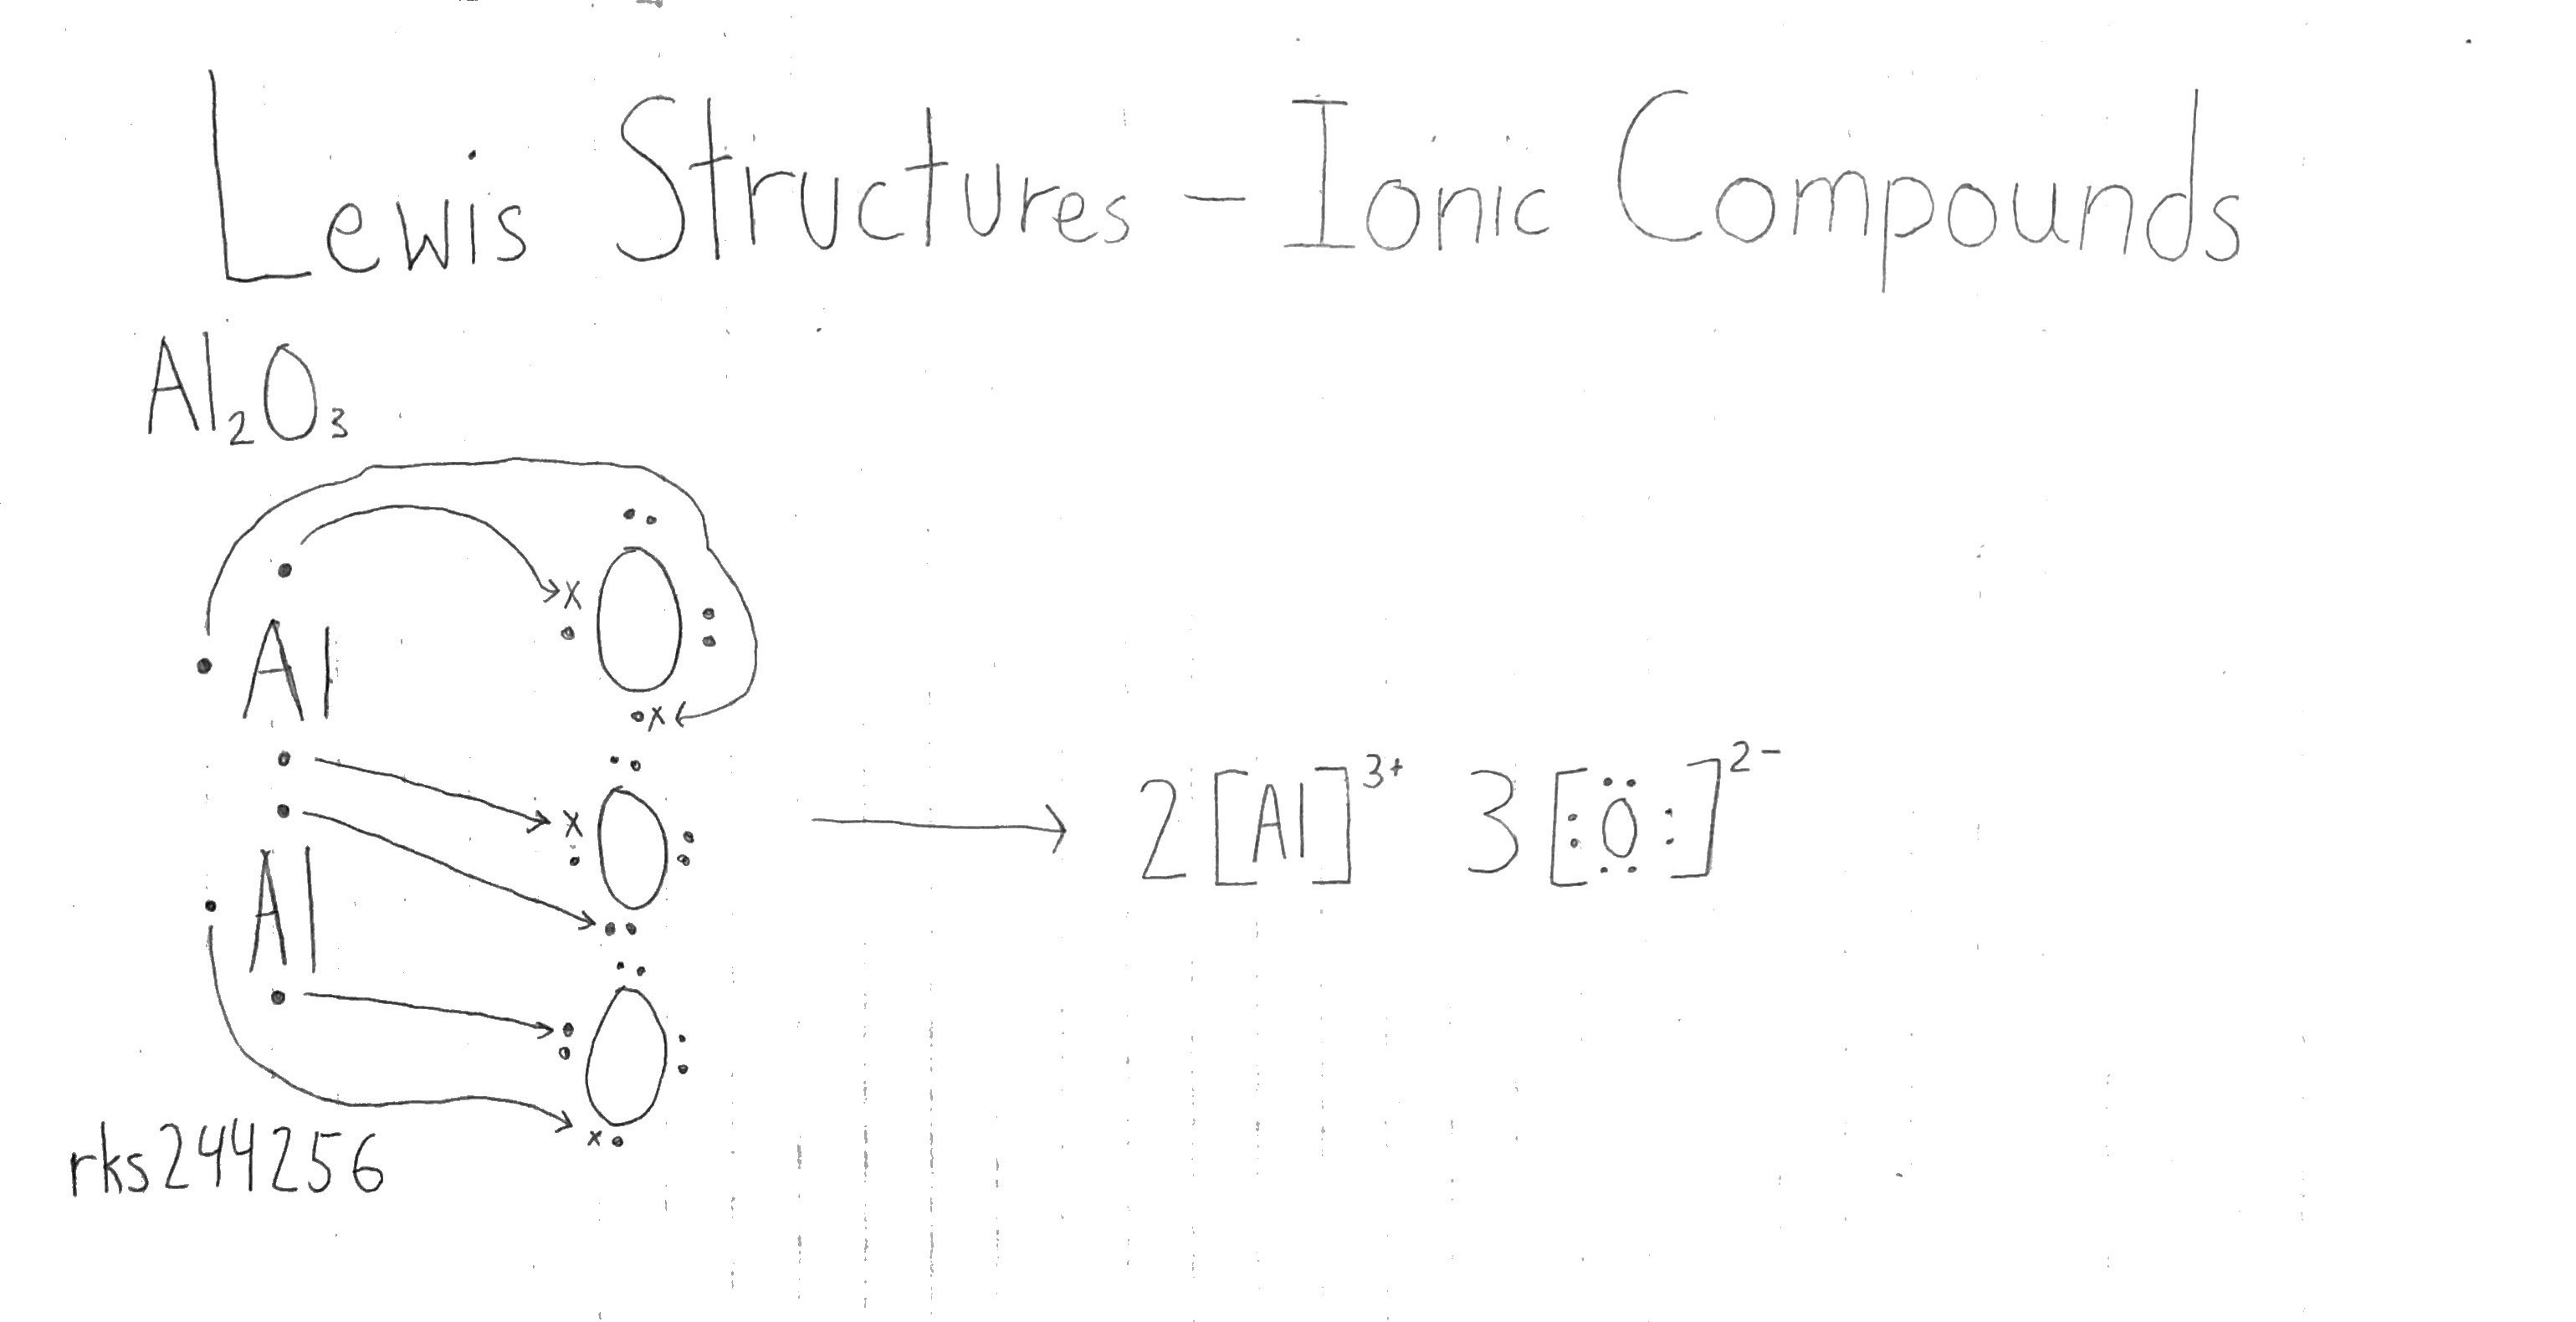 Lewis Structures - Ionic Compounds
Al₂O₃
O
Al
2[Al]³⁺ 3[O]²⁻
O
Al
O
rks244256